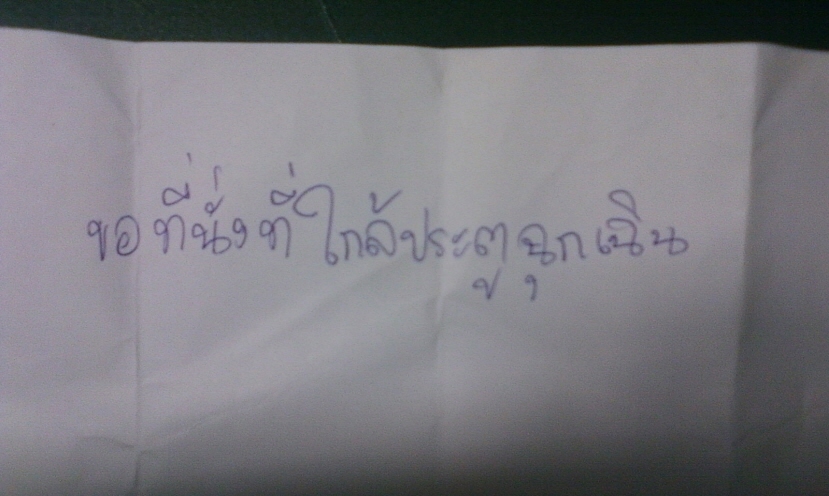 ขอที่นั่งที่ใกล้ประตูฉุกเฉิน